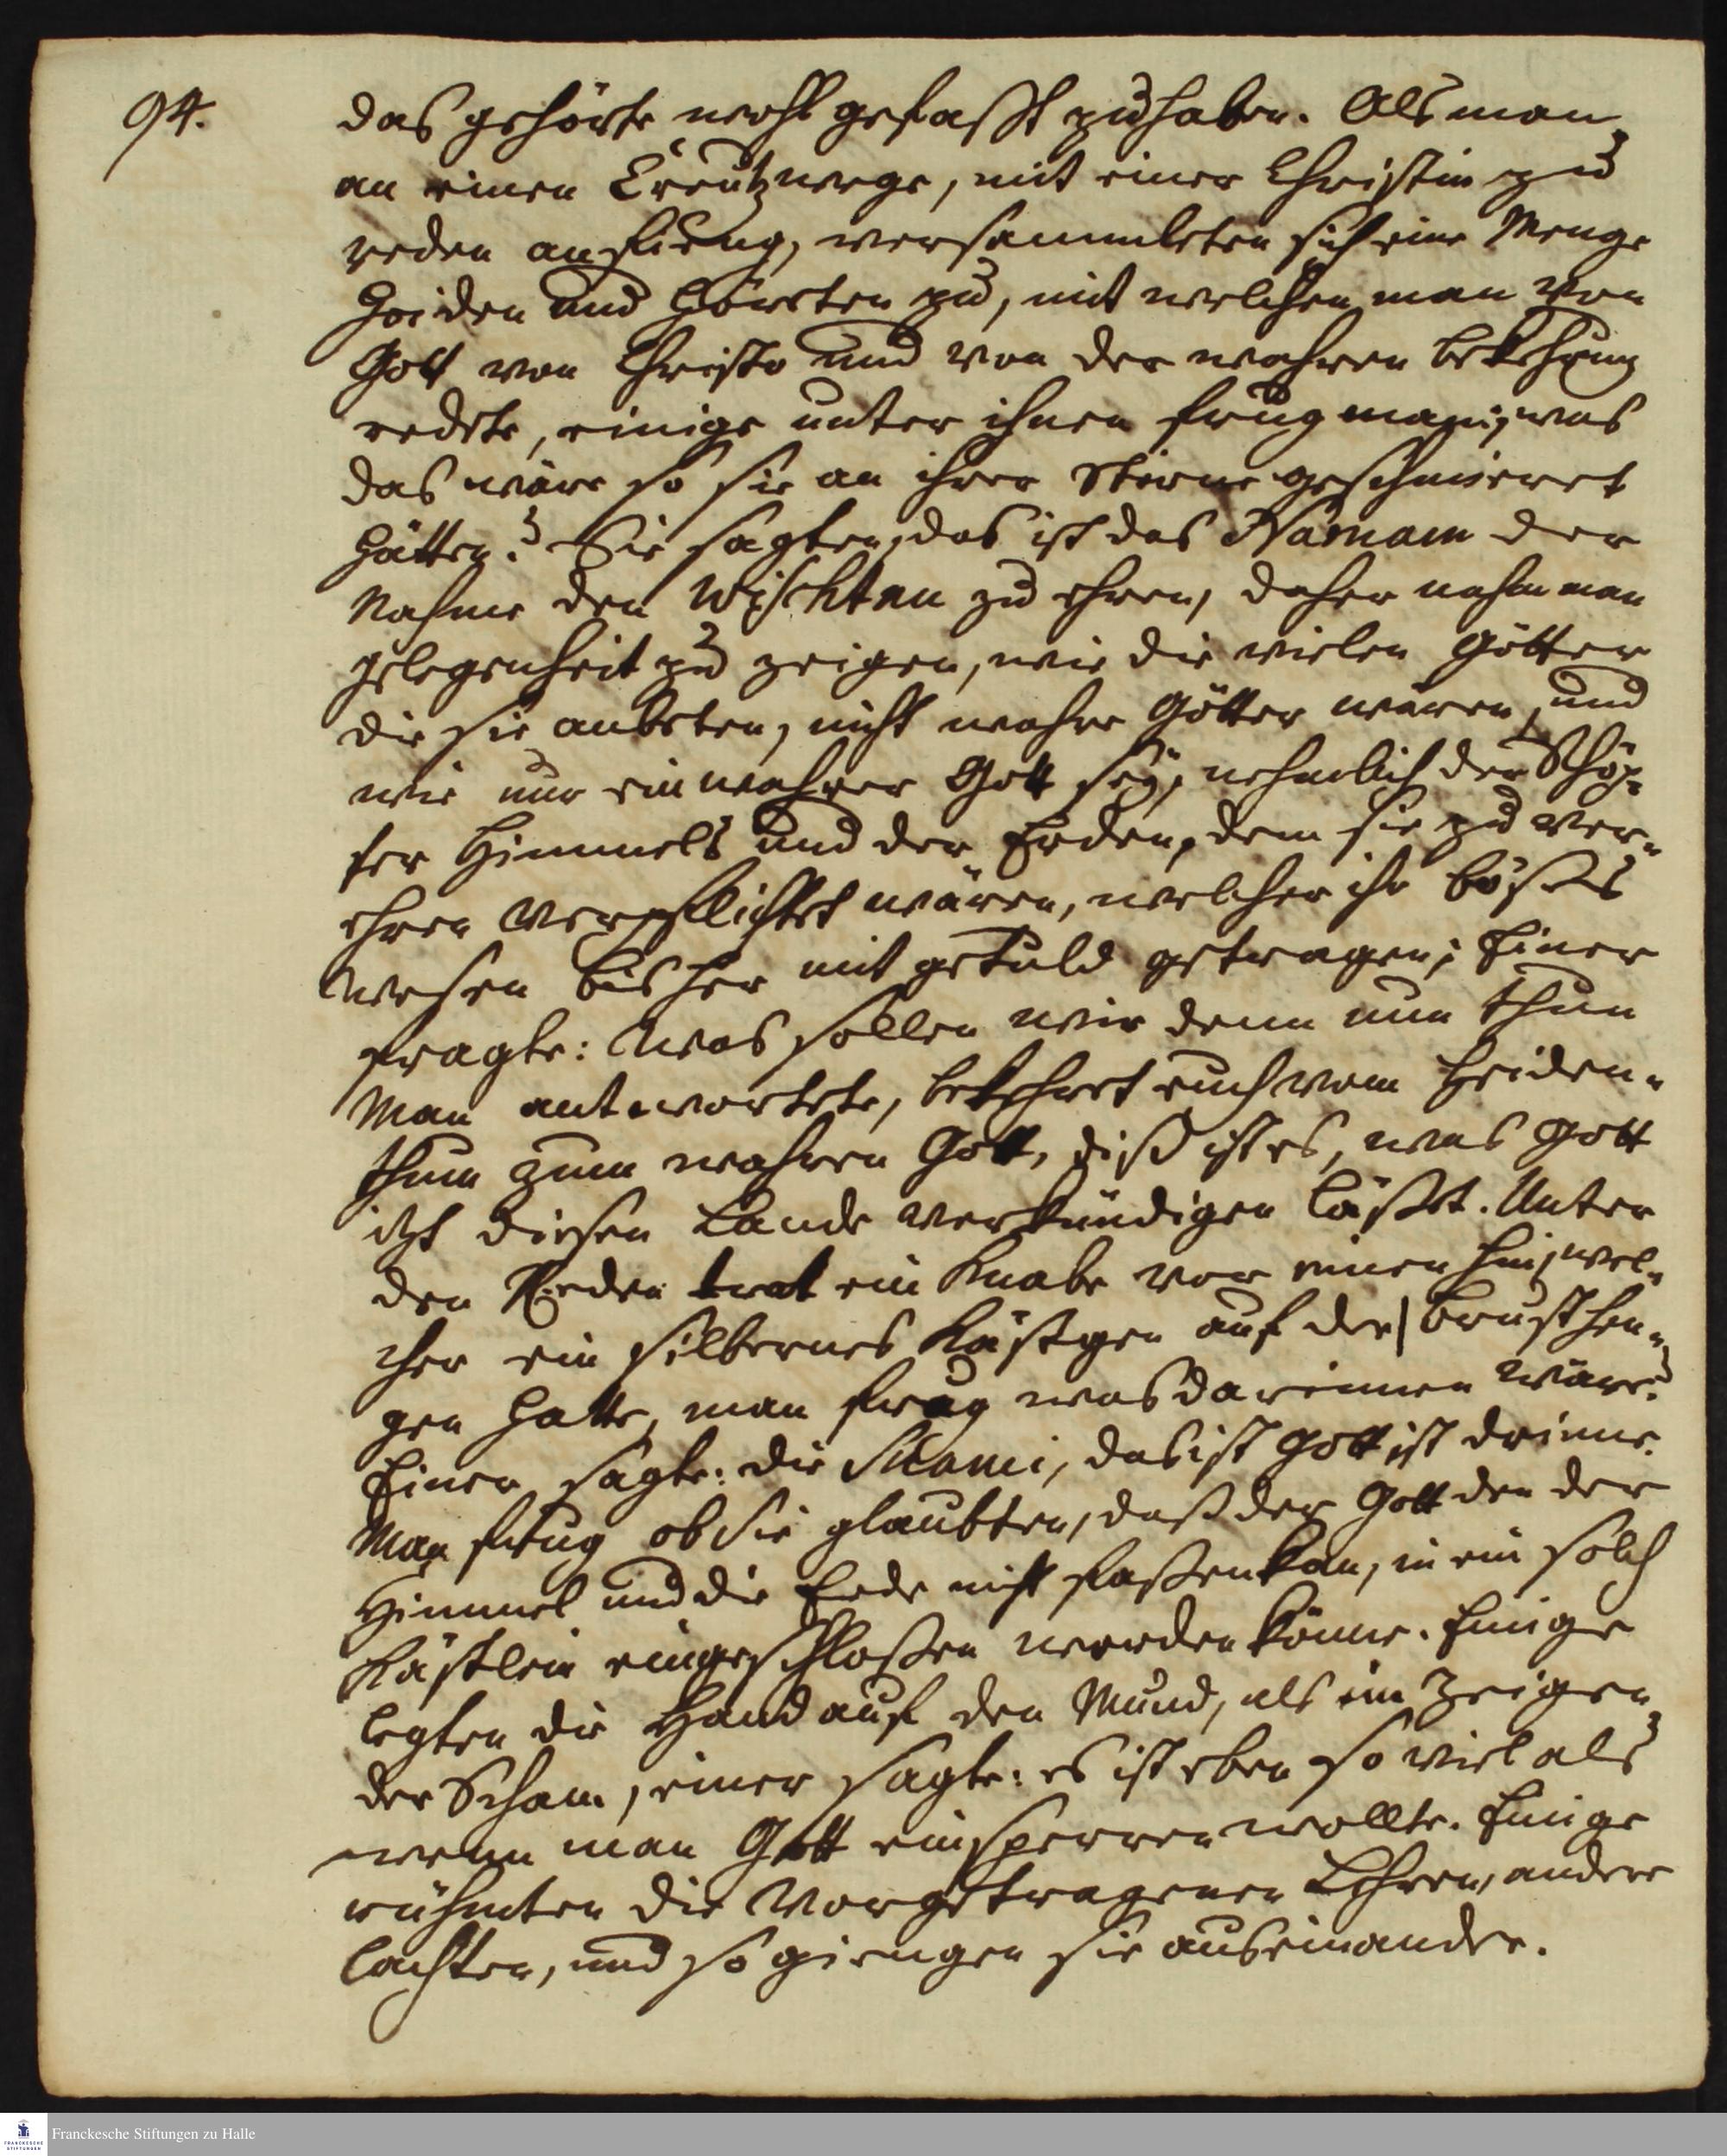 94.
das gehörte wohl gefasst zu haben. Als man
an einen Creutzwege, mit einer Christin zu
reden anfieng, versammleten sich eine Menge
Heiden und hörten zu, mit welchen man von
Gott von Christo und von der wahren bekehrung
redete, einige unter ihnen frug man, was
das wäre so sie an ihrer Stirne geschmieret
hätten? Sie sagten, das ist das Námam der
Nahme den Wischtnu zu ehren, daher nahm man
gelegenheit zu zeigen, wie die vielen Götter
die sie anbeten, nicht wahre Götter wären, und
wie nur ein wahrer Gott seÿ, nehmlich der Schöp-
fer Himmels und der Erden, dem sie zu ver-
ehren verpflichtet wären, welcher ihr böses
wesen bisher mit getuld getragen; Einer
fragte: was sollen wir denn nun thun
Man antwortete, bekehret euch vom Heiden-
thum zum wahren Gott, diß ist es, was Gott
itzt diesen Lande verkündigen läßet. Unter
den Reden trat ein Knabe vor einen hin, wel-
cher ein silbernes Kästgen auf der Brust hen-
gen hatte, man frug was darinnen wäre?
Einer sagte: die Suami, das ist Gott ist drinne.
Man frug ob sie glaubten, daß der Gott den der
Himmel und die Erde nicht faßen kan, in ein solch
Kästlein eingeschloßen werden könne. Einige
legten die Hand auf den Mund, als ein Zeigen
der Scham, einer sagte: es ist eben so viel als
wenn man Gott einsperren wollte. Einige
rühmten die vorgetragenen Lehren, andere
lachten, und so giengen sie auseinander.
Franckesche Stiftungen zu Halle
FRANCKESCHE
STIFTUNGEN